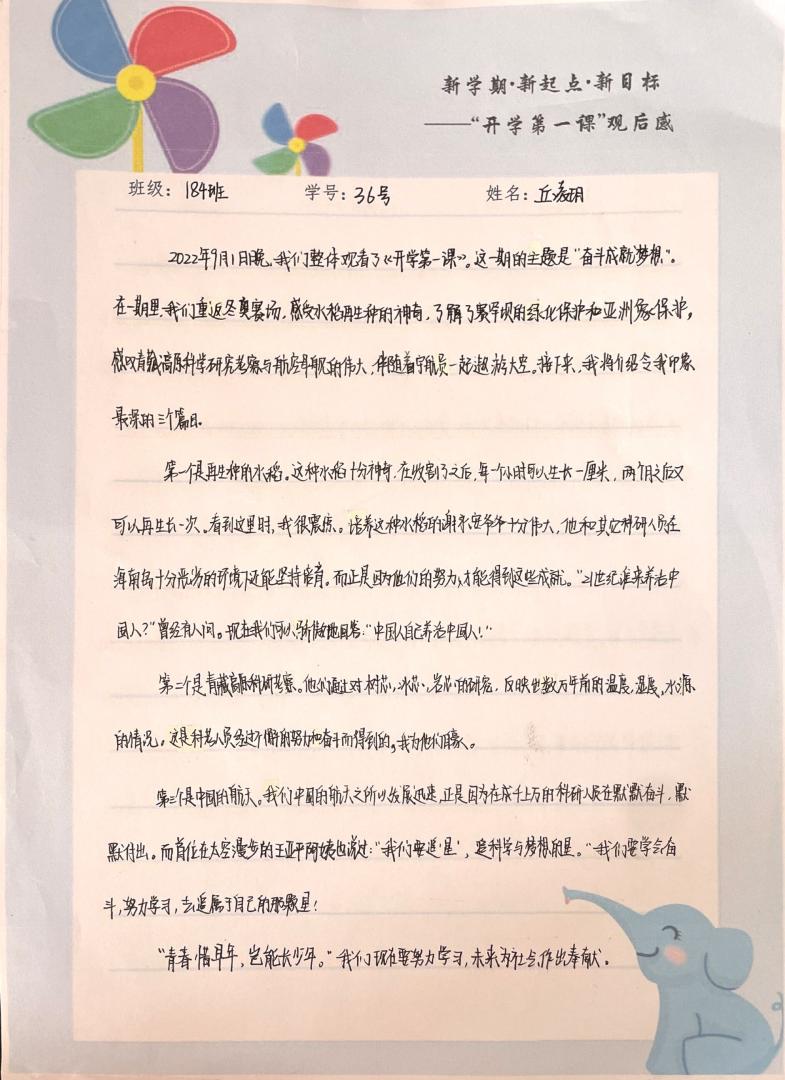 新学期·新起点·新目标
——“开学第一课”观后感
班级：184班 学号：36号 姓名：丘凌玥
2022年9月1日晚，我们整体观看了《开学第一课》。这一期的主题是“奋斗成就梦想”。
在一期里，我们重返冬奥赛场，感受水稻再生种的神奇，了解了塞罕坝的绿化保护和亚洲象保护，
感叹青藏高原科学研究考察与航空母舰的伟大，伴随着宇航员一起遨游太空。接下来，我将介绍令我印象
最深的三个篇目。
第一个是再生种的水稻。这种水稻十分神奇，在收割了之后，每一个小时可以生长一厘米，两个月之后又
可以再生长一次。看到这里时，我很震惊。培养这种水稻的谢永安爷爷十分伟大，他和其它科研人员在
海南岛十分恶劣的环境下还能坚持培育。而正是因为他们的努力，才能得到这些成就。“21世纪谁来养活中
国人？”曾经有人问。现在我们可以骄傲地回答：“中国人自己养活中国人！”
第二个是青藏高原科研考察。他们通过对树芯、冰芯、岩芯的研究，反映出数万年前的温度，湿度，水源
的情况。这是科考人员经过不懈的努力和奋斗而得到的，我为他们自豪。
第三个是中国的航天。我们中国的航天之所以发展迅速，正是因为在成千上万的科研人员在默默奋斗，默
默付出。而首位在太空漫步的王亚平阿姨也说过：“我们要追‘星’，追科学与梦想的星。”我们要学会奋
斗，努力学习，去追属于自己的那颗星！
“青春惜早年，岂能长少年。”我们现在要努力学习，未来为社会作出奉献。